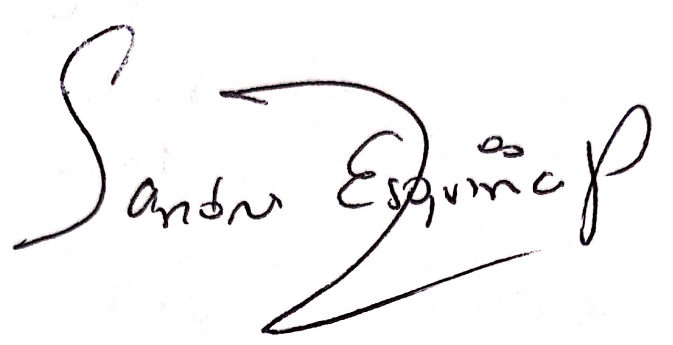 Sandra Esquinca P